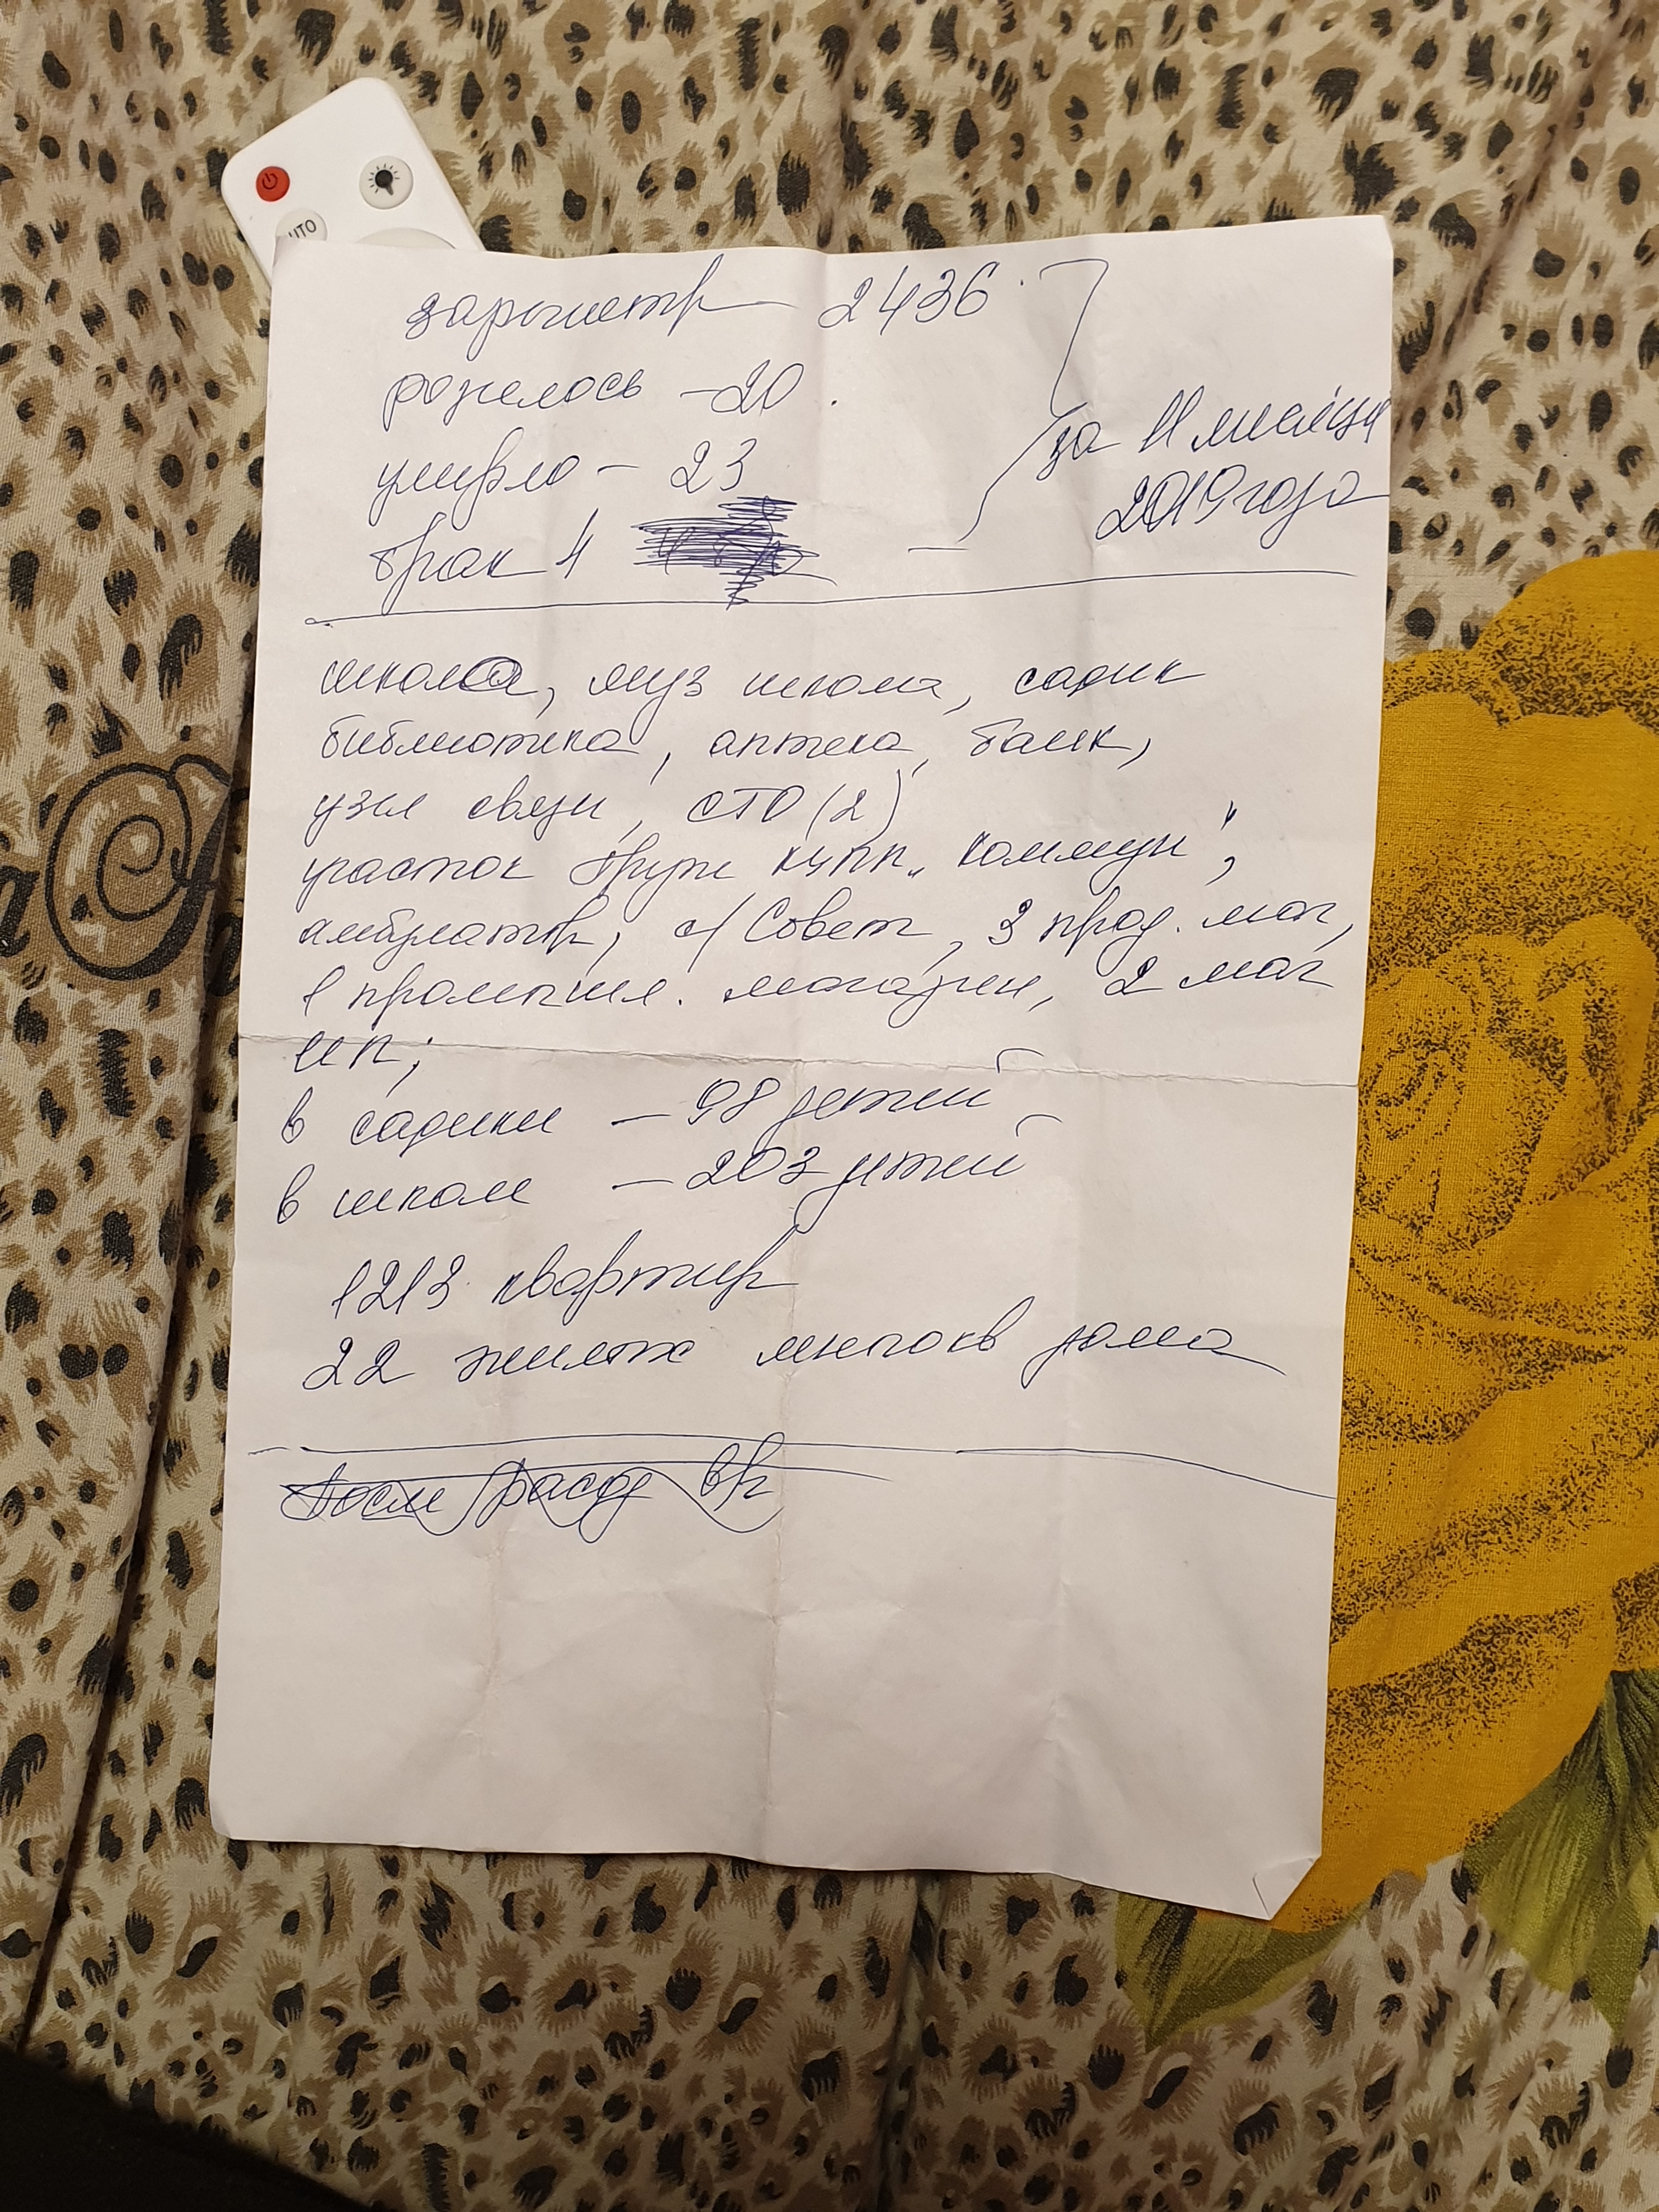 UTO
зарегистр 2436
родилось - 20
умерло - 23
брак 4
за 11 месяцев
2019 года
школа, муз школа, садик
библиотека, аптека, банк,
узел связи, СТО (2)
участок Бруж КУПП „Коммун",
амбулатор, с/Совет, 3 прод. маг,
1 промышл. магазин, 2 маг
ИП;
в садике - 98 детей
в школе - 203 детей
1213 квартир
22 жилых многокв дома
После расср вр